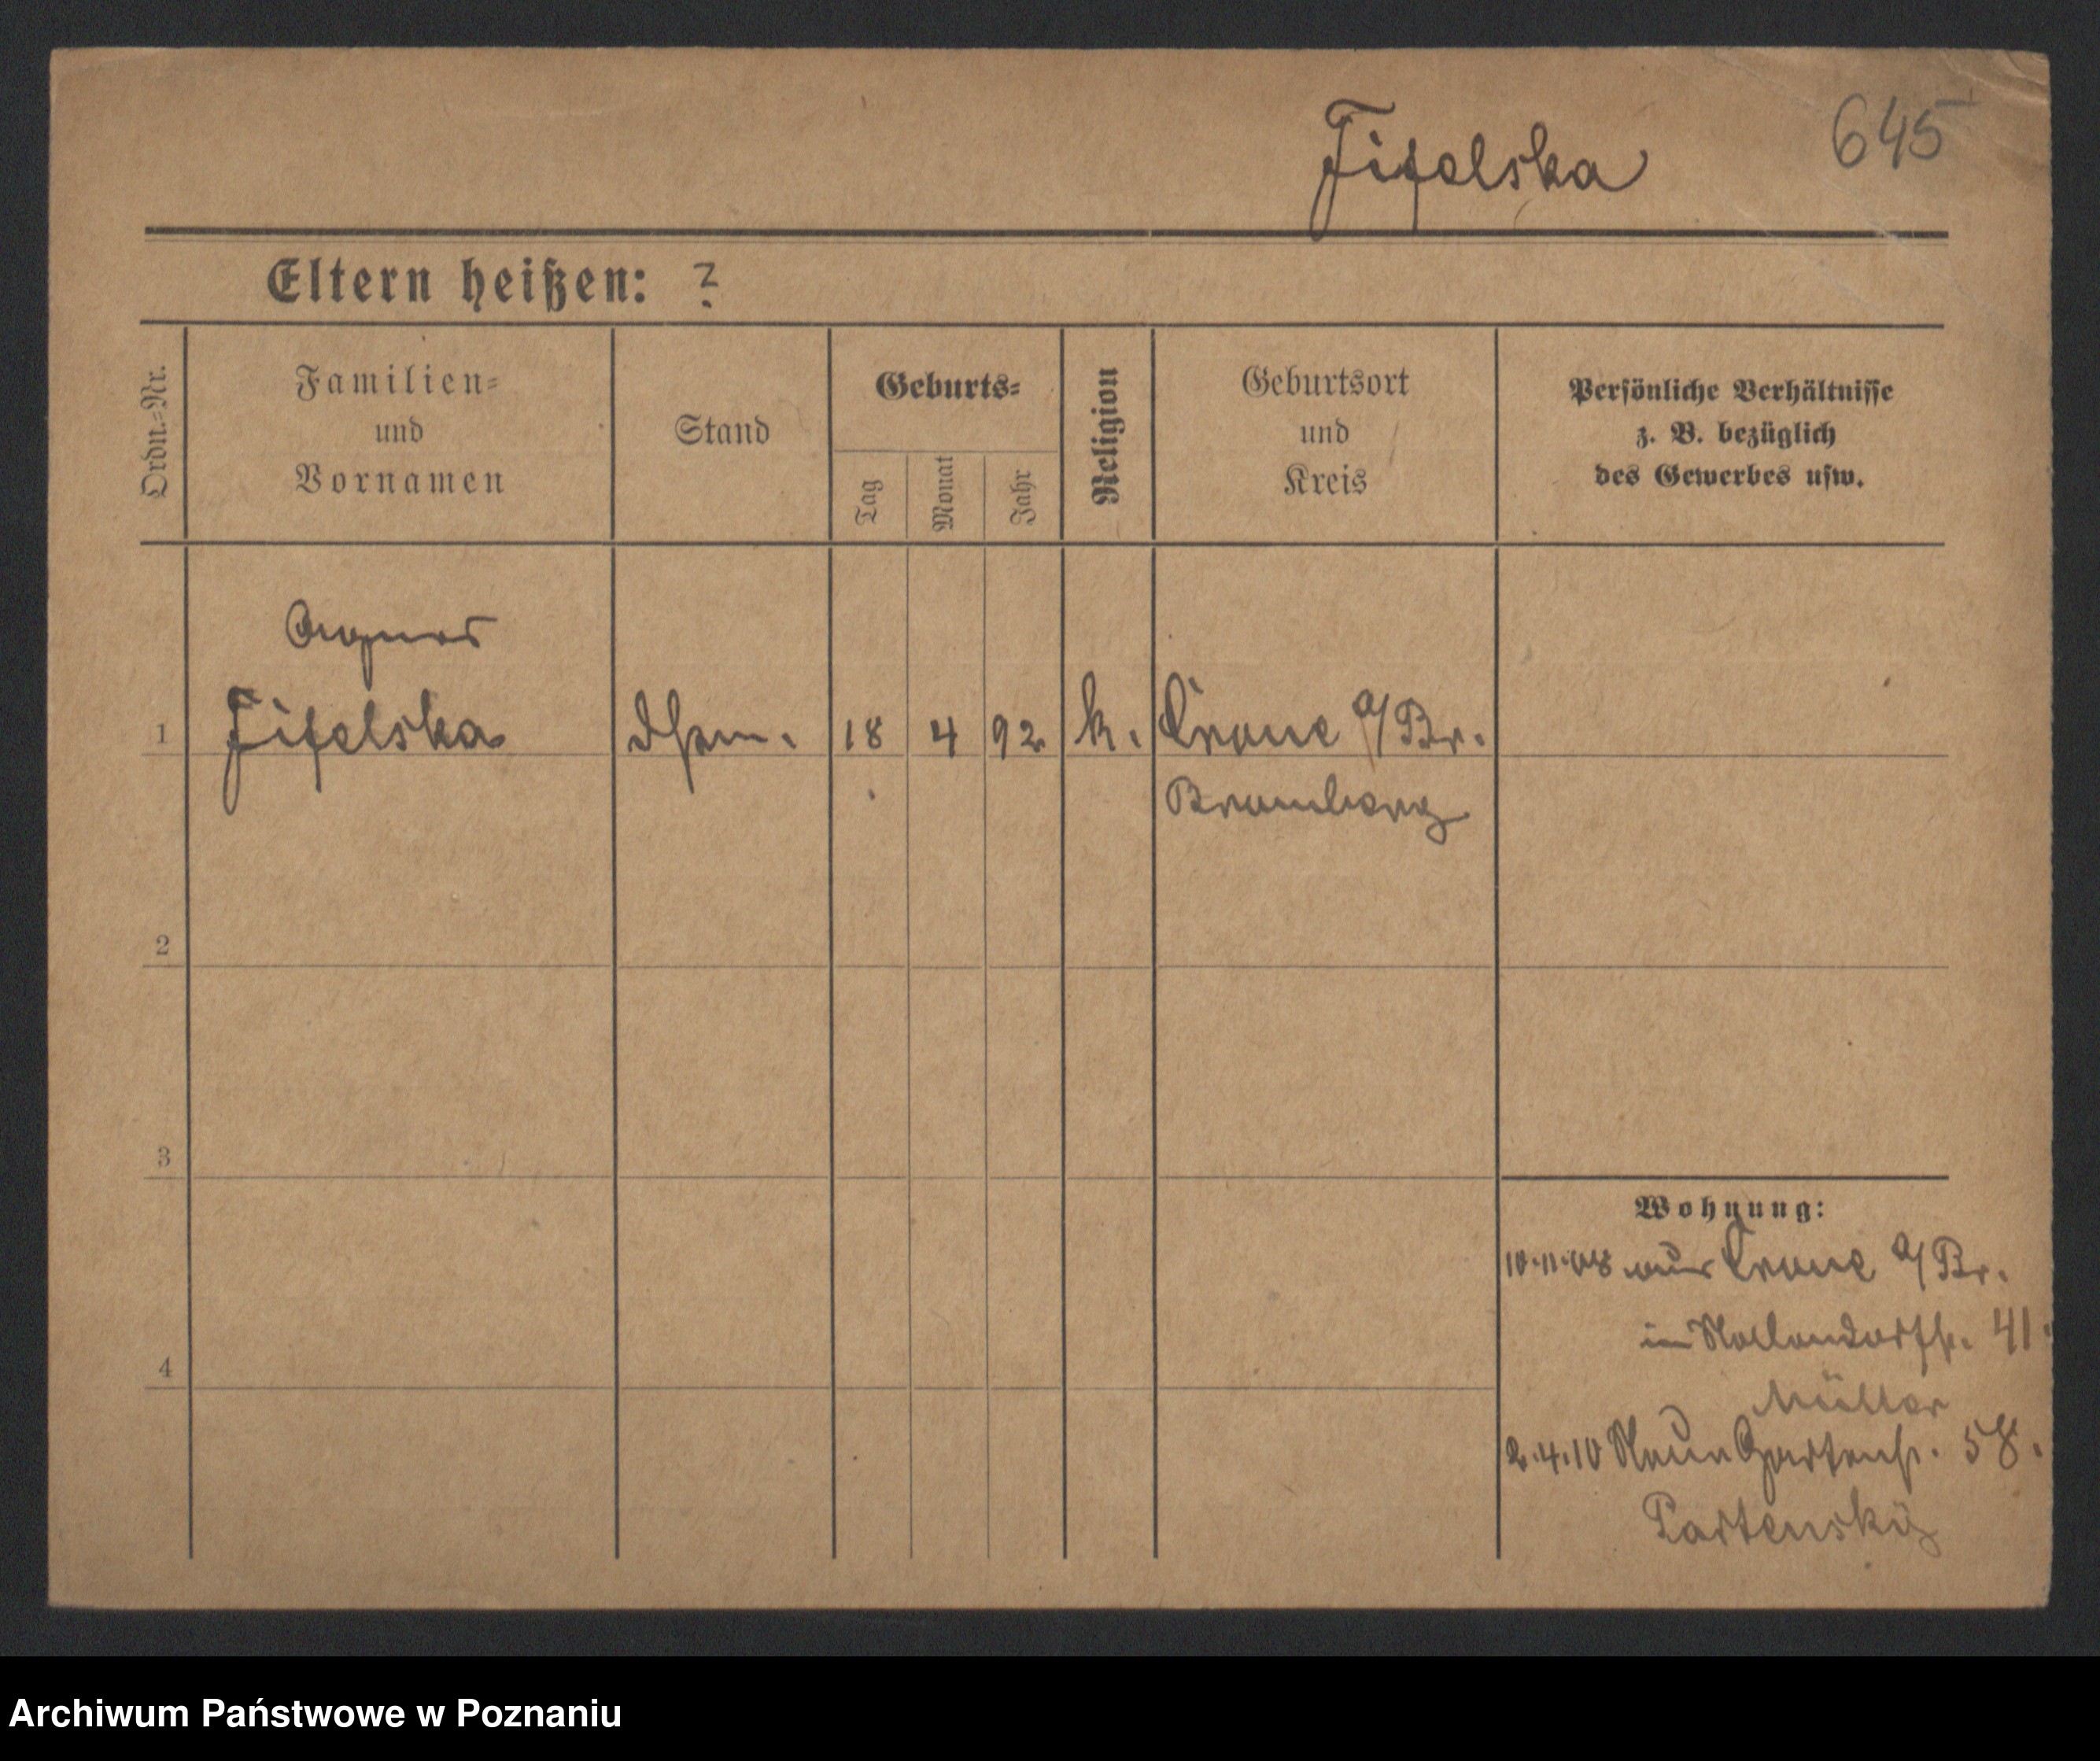 Fifelska
645
Eltern heißen: ?
Ordn.-Nr.
Familien-
und
Vornamen
Stand
Geburts-
Tag
Monat
Jahr
Religion
Geburtsort
und
Kreis
Persönliche Verhältnisse
z. B. bezüglich
des Gewerbes usw.
Agnes
1 Fifelska 18 4 92 k. Crone a/Br.
Bromberg
2
3
Wohnung:
10.11.08 aus Crone a/Br.
in Nollendorfstr. 41.
4
Müller
2.4.10 Neue Gartenstr. 58.
Partensky
Archiwum Państwowe w Poznaniu